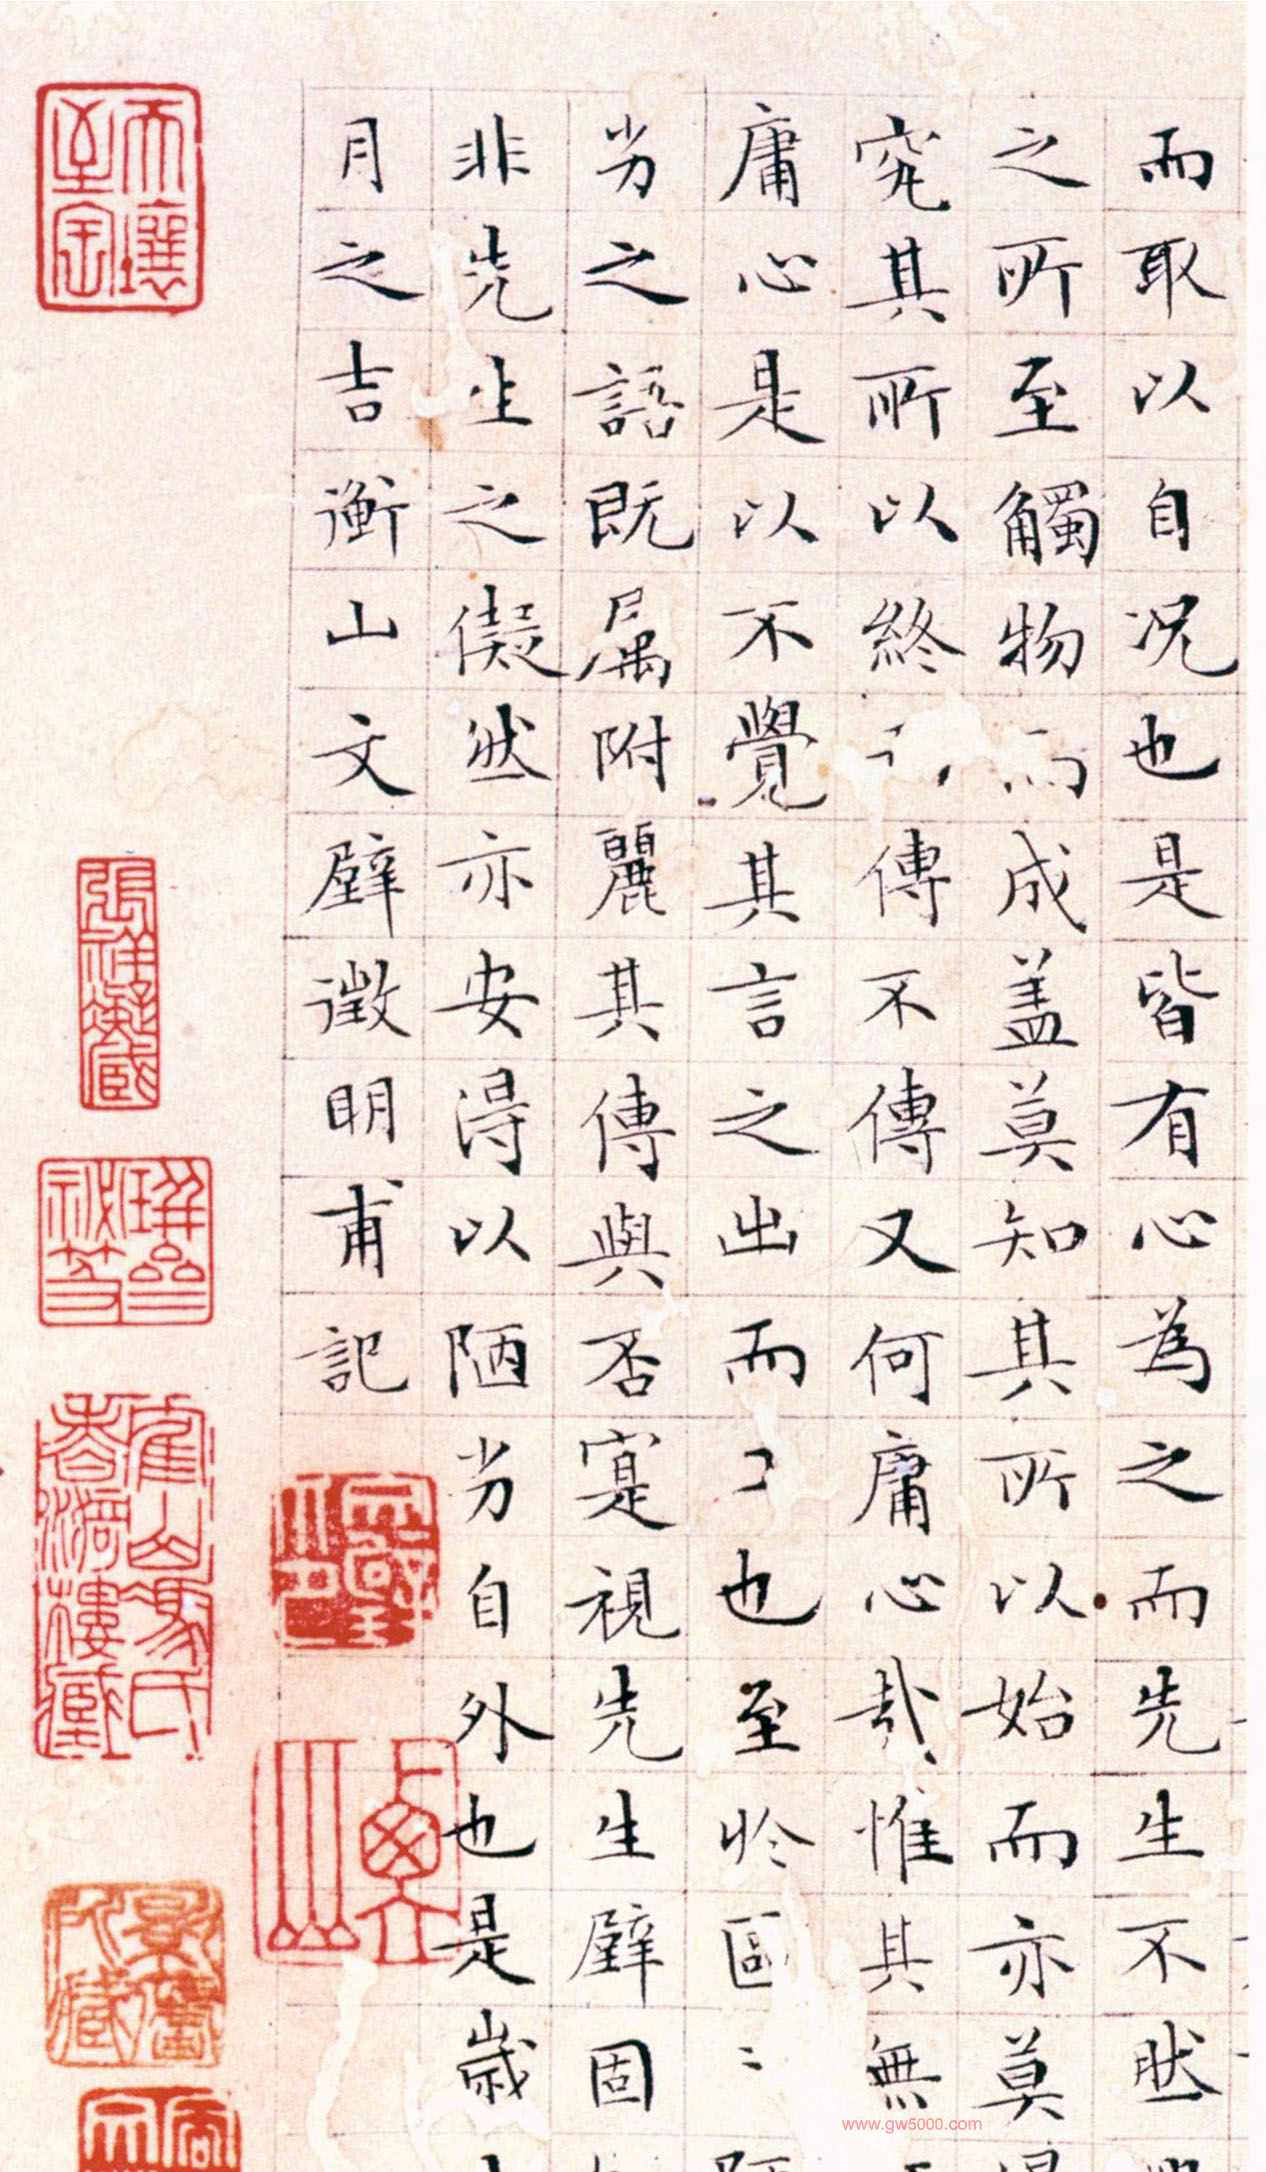 而取以自况也是皆有心為之而先生不然
之所至觸物而成盖莫知其所以始而亦莫
究其所以終 傳不傳又何庸心哉惟其無
庸心是以不覺其言之出而 也至於區
劣之語既属附麗其傳與否寔視先生壁固
非先生之儗然亦安得以陋劣自外也是歳
月之吉衡山文壁徵明甫記
www.gw5000.com